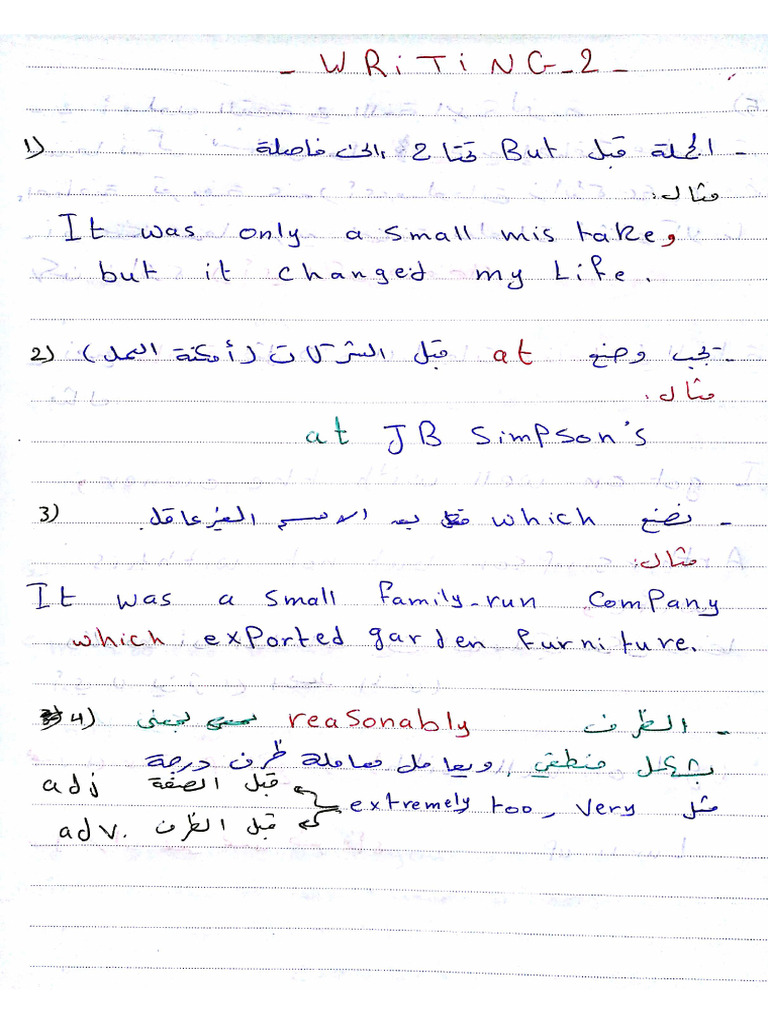 - WRiTiNG-2-
1) - الجملة قبل But تحتاج الى فاصلة
مثال:
It was only a small mistake,
but it changed my Life.
2) - يجب وضع at قبل الشركات (أمكنة العمل)
مثال:
at JB Simpson's
3) - نضع which بعد الاسم الغير عاقل.
مثال:
It was a small family-run company
which exported garden furniture.
4) - الظرف reasonably بمعنى
بشكل منطقي, ويعامل معاملة ظرف درجة
مثل extremely too, very قبل الصفة adj
قبل الظرف adv.